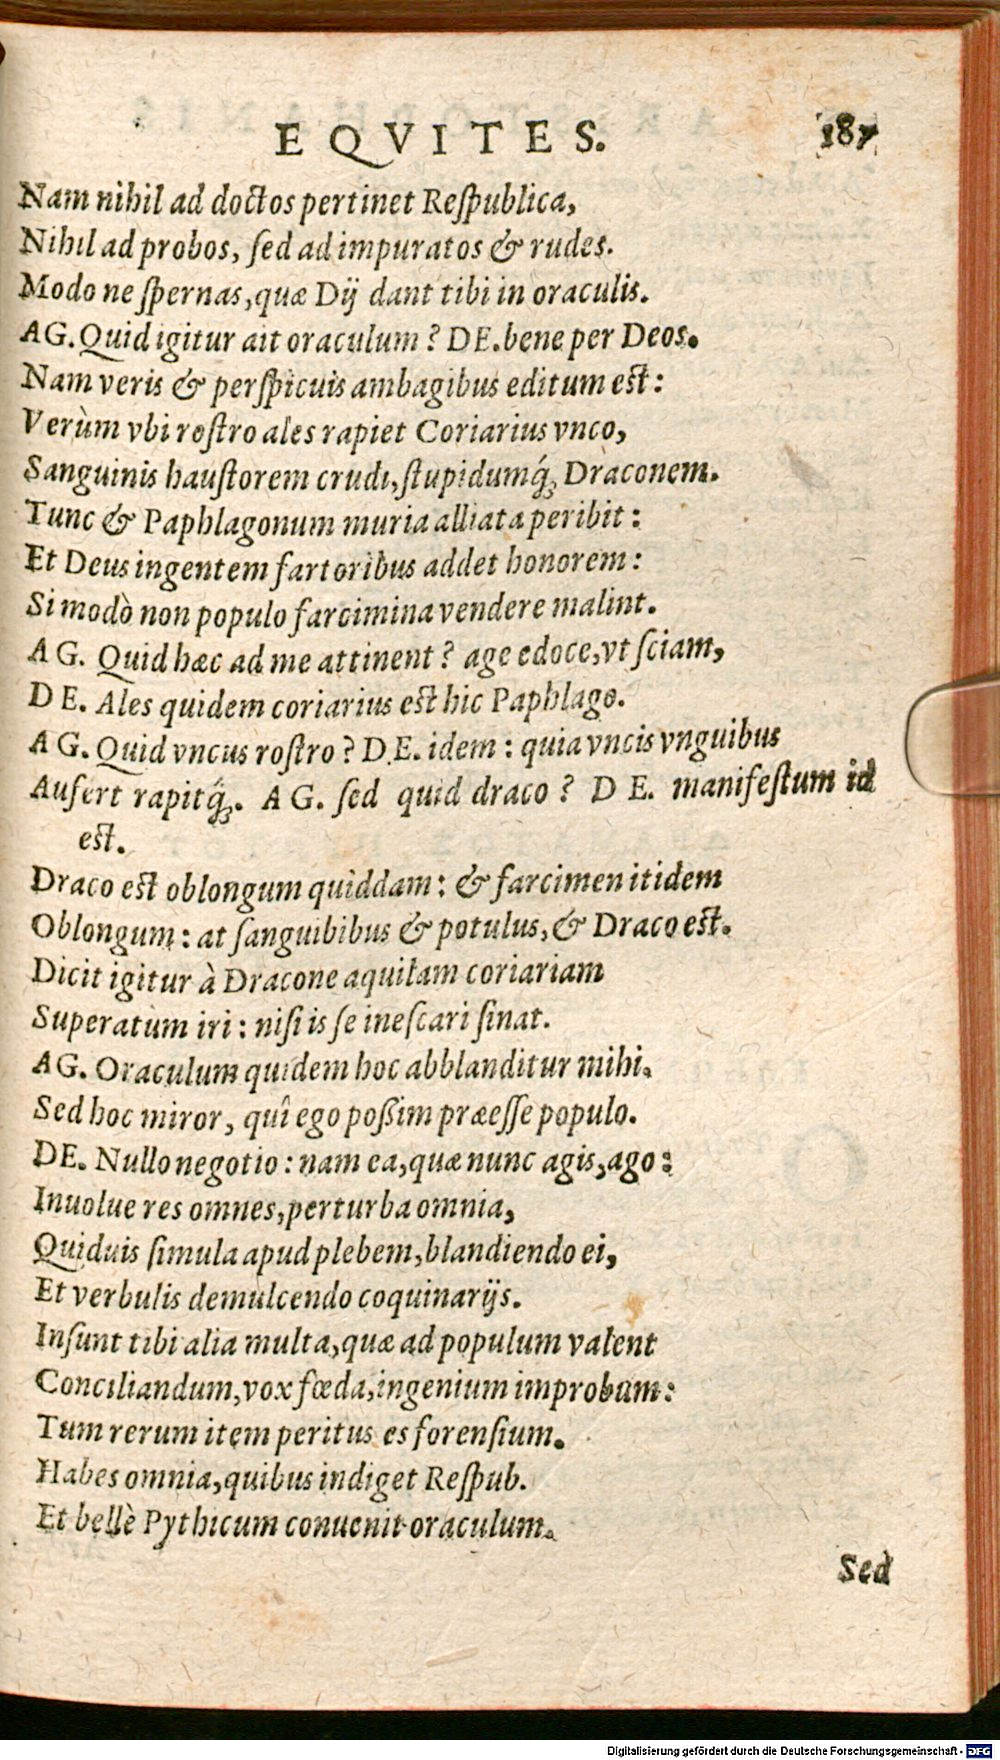 EQVITES. 187
Nam nihil ad doctos pertinet Reſpublica,
Nihil ad probos, ſed ad impuratos & rudes.
Modo ne ſpernas, quæ Dij dant tibi in oraculis.
AG. Quid igitur ait oraculum? DE. bene per Deos.
Nam veris & perſpicuis ambagibus editum est:
Verùm vbi roſtro ales rapiet Coriarius vnco,
Sanguinis hauſtorem crudi, ſtupidumq́; Draconem.
Tunc & Paphlagonum muria alliata peribit:
Et Deus ingentem fartoribus addet honorem:
Si modò non populo farcimina vendere malint.
AG. Quid hæc ad me attinent? age edoce, vt ſciam,
DE. Ales quidem coriarius est hic Paphlago.
AG. Quid vncus roſtro? DE. idem: quia vncis vnguibus
Aufert rapitq́;. AG. ſed quid draco? DE. manifeſtum id
est.
Draco est oblongum quiddam: & farcimen itidem
Oblongum: at ſanguibibus & potulus, & Draco est.
Dicit igitur à Dracone aquilam coriariam
Superatum iri: niſi is ſe ineſcari ſinat.
AG. Oraculum quidem hoc abblanditur mihi.
Sed hoc miror, quî ego poßim præeſſe populo.
DE. Nullo negotio: nam ea, quæ nunc agis, ago:
Inuolue res omnes, perturba omnia,
Quiduis ſimula apud plebem, blandiendo ei,
Et verbulis demulcendo coquinarijs.
Inſunt tibi alia multa, quæ ad populum valent
Conciliandum, vox fœda, ingenium improbum:
Tum rerum item peritus es forenſium.
Habes omnia, quibus indiget Reſpub.
Et bellè Pythicum conuenit oraculum.
Sed
Digitalisierung gefördert durch die Deutsche Forschungsgemeinschaft - DFG